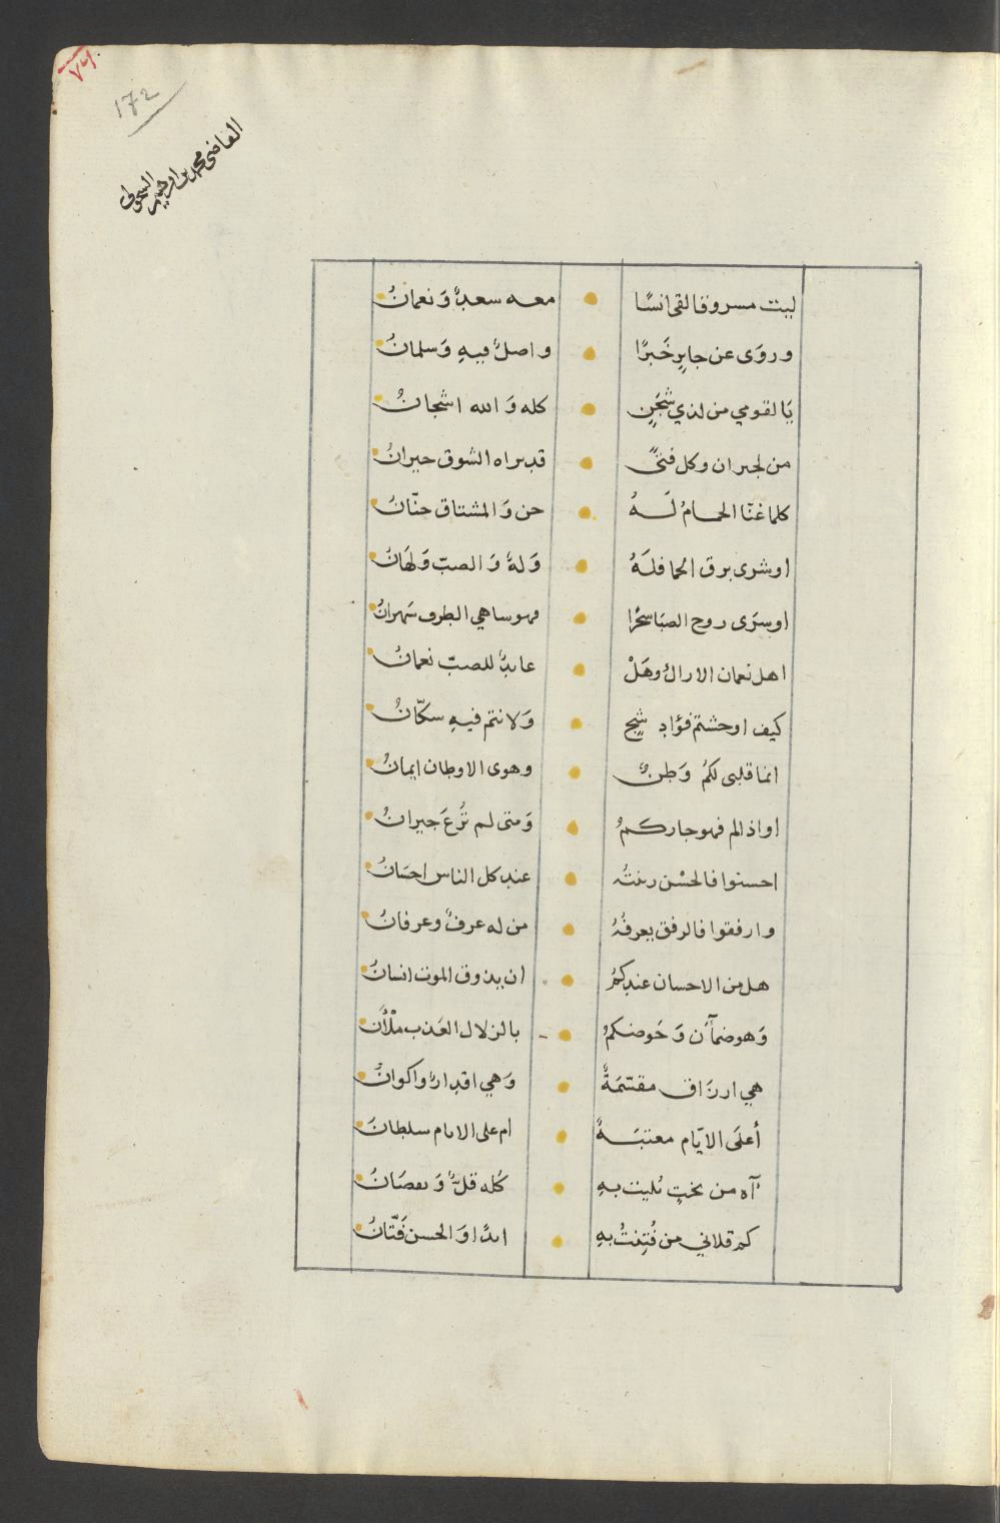 ٧٦
172
القاضي محمد بن ابراهيم السحولي
ليت مسروقا لقى انسًا معه سعدٌ وَ نعمانُ
وروَى عن جابرٍ خَبرًا واصلٌ فيهِ وَسلمانُ
يَا لقومي من لذي شجَنٍ كله وَ الله اشجانُ
من لجيران وكل فتىً قد براه الشوق حيرانُ
كلما غنّا الحمامُ لَهُ حن وَ المشتاق حنّانُ
اوشرى برق الحما فلَهُ وَلهٌ وَ الصبّ وَلهَانُ
اوسرَى روح الصبَا سحَرًا فهو ساهي الطرف سَهرانُ
اهل نعمان الاراك وهَلْ عايدٌ للصبّ نعمانُ
كيف اوحشتم فؤاد شجٍ وَلانتم فيهِ سكّانُ
انما قلبى لكمُ وَطنٌ وهوى الاوطان ايمانُ
اواذا لم فهو جاركمُ وَمتى لم تُرعَ جيرانُ
احسنوا فالحسْن زينتُه عند كل الناس احسَانُ
وارفقوا فالرفق يعرفُهُ من له عرفٌ وعرفانُ
هل من الاحسان عندكمُ ان يذوق الموت انسانُ
وَهو ضمآن وَ حَوضكمُ بالزلال العَذب ملْأَن
هي ارزَاق مقسّمَةٌ وَهي اقدارٌ واكوانُ
أعلَى الايّام معتبَةٌ ام على الايام سلطانَ
آه من بختٍ بُليت بهِ كُله قلٌّ وَ نقصَانُ
كم قلاني من فُتِنتُ بهِ ابدًا وَ الحسن فَتّانُ